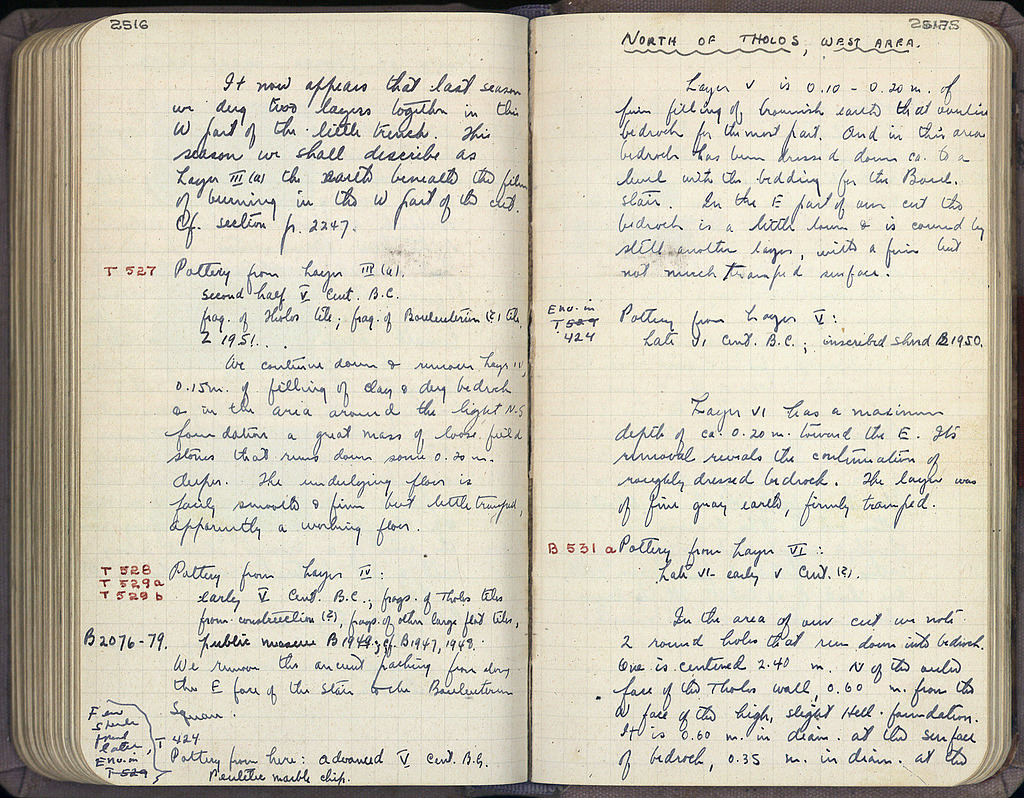 2516
It now appears that last season
we dug two layers together in this
W part of the little trench. This
season we shall describe as
Layer III (a) the earth beneath the film
of burning in the W part of the cut.
Cf. section p. 2247.
T 527 Pottery from Layer III (a).
second half V Cent. B.C.
frag. of Tholos tile; frag. of Bouleuterion (?) tile.
Σ 1951.
We continue down & remove Layer IV,
0.15 m. of filling of clay & dug bedrock
& in the area around the light N-S
foundation a great mass of loose field
stones that runs down some 0.20 m.
deeper. The underlying floor is
fairly smooth & firm but little tramped,
apparently a working floor.
T 528 Pottery from Layer IV:
T 529a early V Cent. B.C., frags. of Tholos tiles
T 529b from construction (?), frags. of other large flat tiles,
B 2076-79. public measure B 1949; cf. B 1947, 1948.
We remove the ancient packing from along
the E face of the stair to the Bouleuterion
Square.
Few
sherds
found
later,
Env. in
T 529
T 424
Pottery from here: advanced V Cent. B.C.
Pentelic marble chip.
2517
NORTH OF THOLOS, WEST AREA.
Layer V is 0.10 - 0.20 m. of
firm filling of brownish earth that overlies
bedrock for the most part. And in this area
bedrock has been dressed down ca. to a
level with the bedding for the Boul.
stair. In the E part of our cut the
bedrock is a little lower & is covered by
still another layer, with a firm but
not much tramped surface.
Env. in
T 529
424
Pottery from Layer V:
Late VI Cent. B.C.; inscribed sherd B 1950.
Layer VI has a maximum
depth of ca. 0.20 m. toward the E. Its
removal reveals the continuation of
roughly dressed bedrock. The layer was
of fine gray earth, firmly tramped.
B 531 a Pottery from Layer VI:
Late VI - early V Cent. (?).
In the area of our cut we note
2 round holes that run down into bedrock.
One is centered 2.40 m. N of the outer
face of the Tholos wall, 0.60 m. from the
W face of the high, slight Hell. foundation.
It is 0.60 m. in diam. at the surface
of bedrock, 0.35 m. in diam. at the